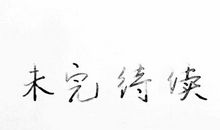 未完待续